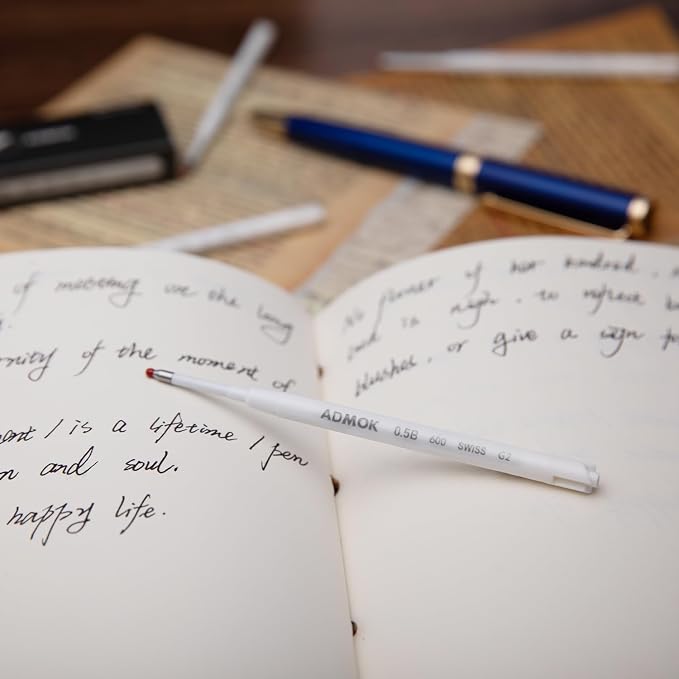 of meeting we the long
rnity of the moment of
ent / is a lifetime / pen
n and soul.
happy life.
No flower of her kindred,
is nigh, to reflect
blushes, or give a sign
ADMOK 0.5B 600 SWISS G2